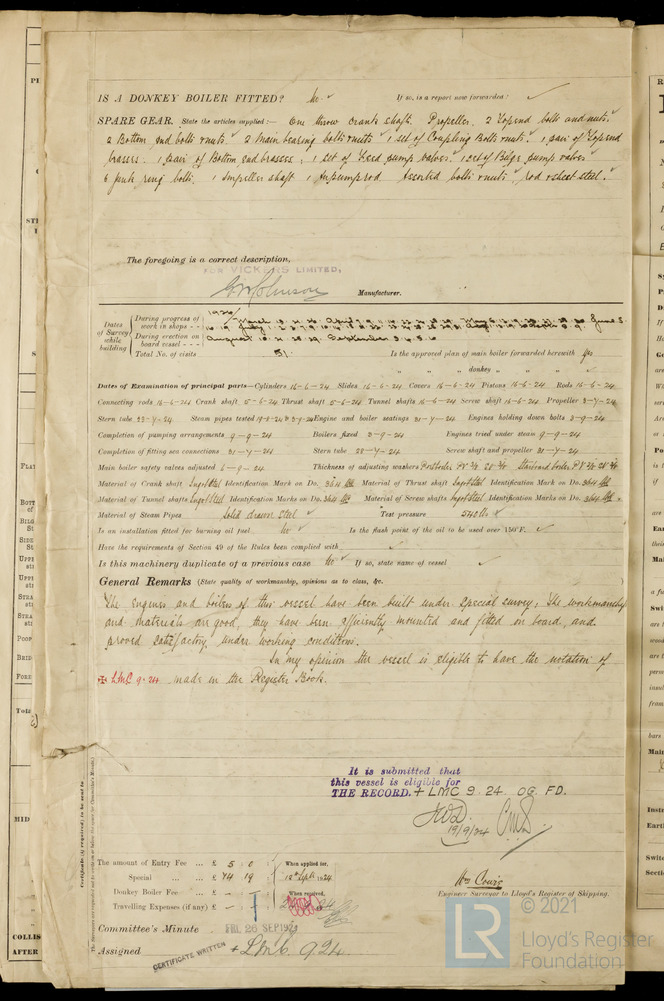 IS A DONKEY BOILER FITTED? No. If so, is a report now forwarded?
SPARE GEAR. State the articles supplied:— One throw crank shaft. Propeller. 2 Topend bolts and nuts.
2 Bottom end bolts & nuts 2 Main bearing bolts & nuts 1 set of Coupling Bolts & nuts. 1 pair of Topend
brasses. 1 pair of Bottom end brasses, 1 set of Feed pump valves. 1 set of Bilge pump valves
6 junk ring bolts. 1 Impeller shaft 1 Airpump rod Assorted bolts & nuts rod & sheet steel.
The foregoing is a correct description,
FOR VICKERS LIMITED,
Manufacturer.
Dates of Survey while building
During progress of work in shops - -
During erection on board vessel - - -
August September
Total No. of visits 51. Is the approved plan of main boiler forwarded herewith Yes
" " " donkey " " "
Dates of Examination of principal parts—Cylinders 16-6-24 Slides 16-6-24 Covers 16-6-24 Pistons 16-6-24 Rods 16-6-24
Connecting rods 16-6-24 Crank shaft 5-6-24 Thrust shaft 5-6-24 Tunnel shafts 16-6-24 Screw shaft 16-6-24 Propeller 3-7-24
Stern tube 23-7-24 Steam pipes tested Engine and boiler seatings 31-7-24 Engines holding down bolts 3-9-24
Completion of pumping arrangements 9-9-24 Boilers fixed 3-9-24 Engines tried under steam 9-9-24
Completion of fitting sea connections 31-7-24 Stern tube 28-7-24 Screw shaft and propeller 31-7-24
Main boiler safety valves adjusted 6-9-24 Thickness of adjusting washers Port boiler Starboard boiler
Material of Crank shaft Ingot Steel Identification Mark on Do. 364 Material of Thrust shaft Ingot Steel Identification Mark on Do. 364
Material of Tunnel shafts Ingot Steel Identification Marks on Do. 364 Material of Screw shafts Ingot Steel Identification Marks on Do. 364
Material of Steam Pipes Solid drawn steel Test pressure 540 lbs
Is an installation fitted for burning oil fuel No Is the flash point of the oil to be used over 150°F.
Have the requirements of Section 49 of the Rules been complied with
Is this machinery duplicate of a previous case No If so, state name of vessel
General Remarks (State quality of workmanship, opinions as to class, &c.
The engines and boilers of this vessel have been built under special survey, The workmanship
and materials are good, they have been efficiently mounted and fitted on board, and
proved satisfactory under working conditions.
In my opinion the vessel is eligible to have the notation of
LMC 9-24 made in the Register Book.
It is submitted that
this vessel is eligible for
THE RECORD. + LMC 9.24. OG. FD.
19/9/24
The amount of Entry Fee ... £ 5 : 0 : When applied for,
Special ... ... £ 74 : 19 :
Donkey Boiler Fee ... £ — When received,
Travelling Expenses (if any) £ —
Wm Craig
Engineer Surveyor to Lloyd's Register of Shipping.
Committee's Minute FRI. 26 SEP 1924
Assigned + LMC. 9.24.
CERTIFICATE WRITTEN
LR
© 2021
Lloyd's Register
Foundation